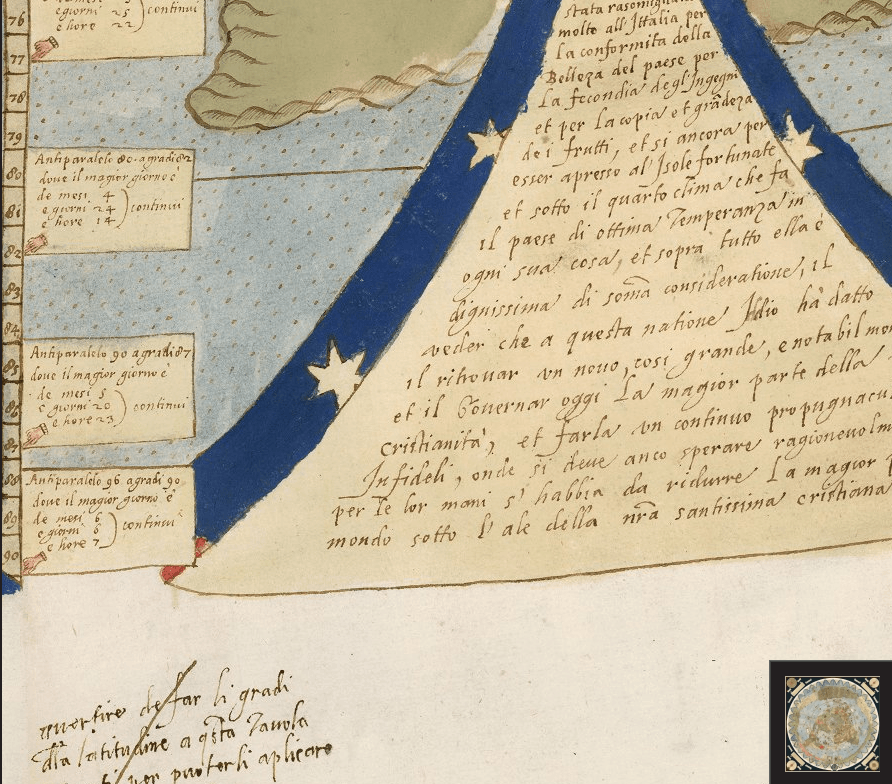 76
77
78
79
80
81
82
83
84
85
86
87
88
89
90
egiorni 25
e hore 22
continui
Antiparalelo 80. a gradi 82
dove il magior giorno è
de mesi 4
e giorni 24
e hore 14
continui
Antiparalelo 90 a gradi 87
dove il magior giorno è
de mesi 5
e giorni 20
e hore 23
continui
Antiparalelo 96. agradi 90
dove il magior giorno è
de mesi 6
e giorni 6
e hore 7
continui
stata rasomigliata
molto all' Ittalia per
la conformita della
Belleza del paese per
La fecondia degl' Ingegni
et per La copia et grandeza
dei frutti, et si ancora per
esser apresso al' Isole fortunate
et sotto il quarto clima che fa
il paese di ottima Temperanza in
ogni sua cosa, et sopra tutto ella è
dignissima di soma consideratione, il
veder che a questa natione Iddio ha datto
il ritrovar un novo, cosi grande, e notabil mon
et il Governar oggi La magior parte della
Cristianità, et farla un continuo propugnacul
Infideli, onde si deve anco sperare ragionevolm
per le lor mani s' habbia da ridurre La magior
mondo sotto l' ale della nra santissima cristiana
avertire de far li gradi
dlla latitudine a qsta Tavola
per poterli aplicare